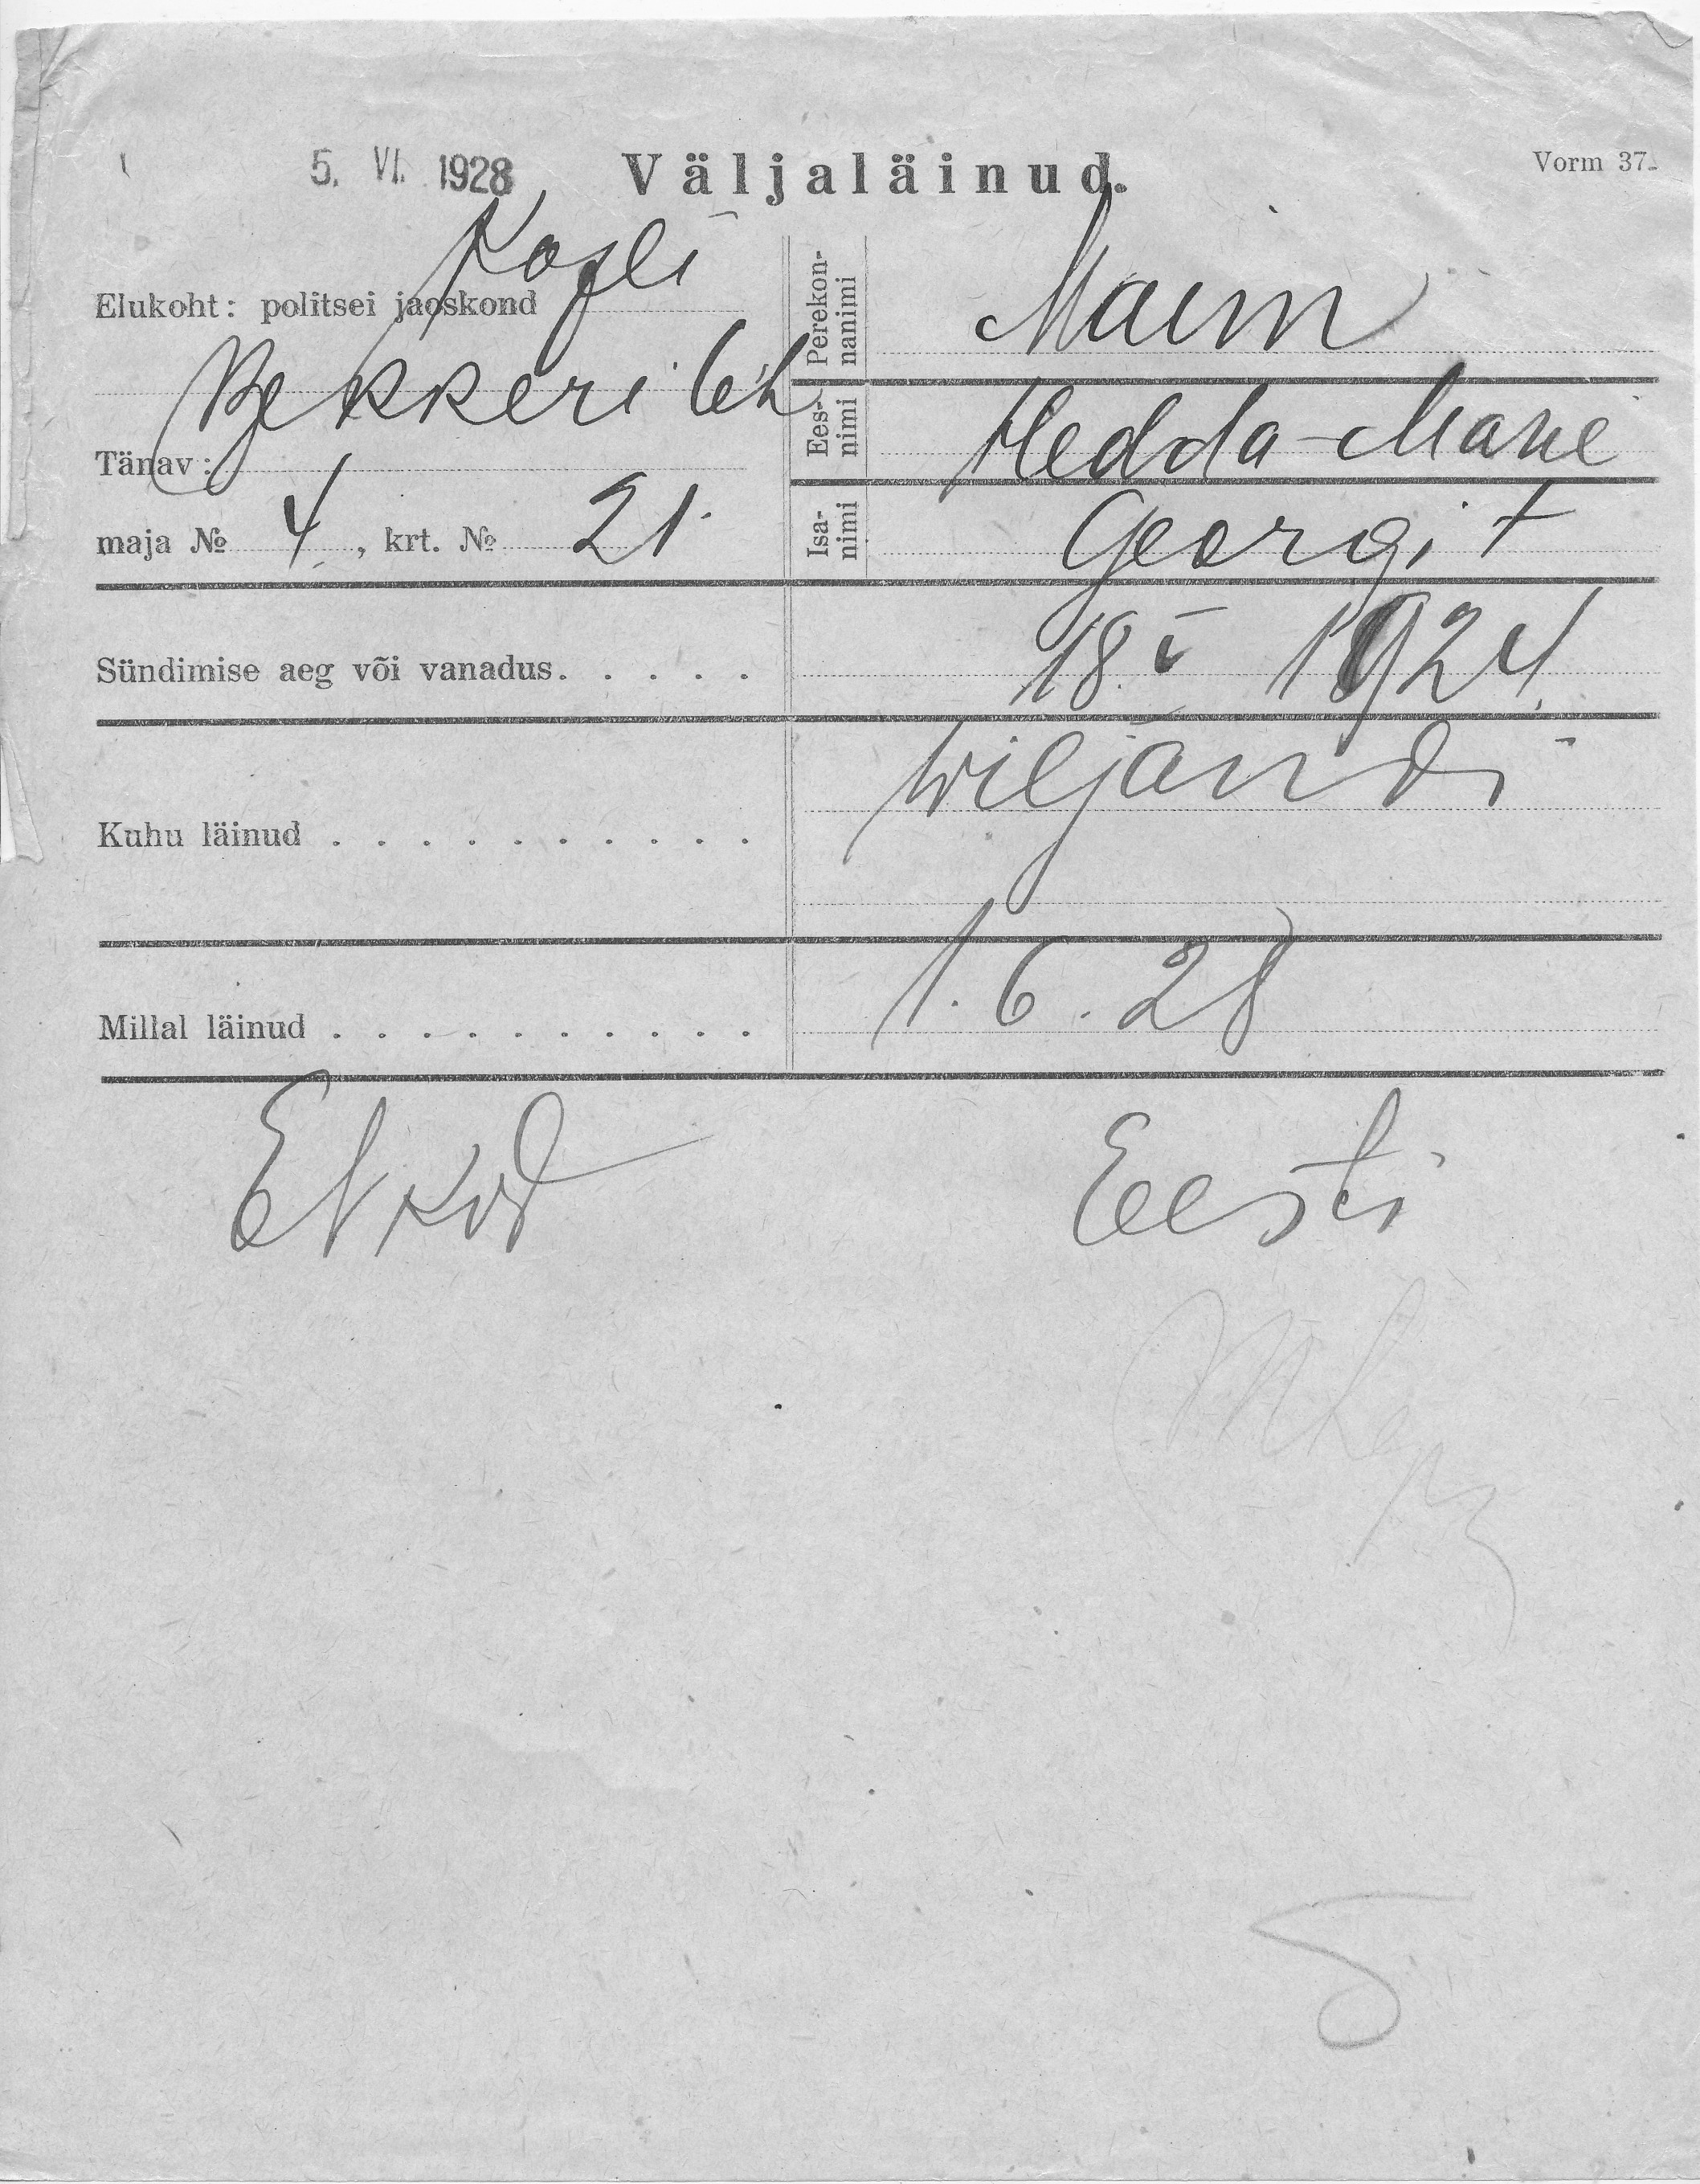 5. VI. 1928 Väljaläinud. Vorm 37.
Kopli
Elukoht: politsei jaoskond
Bekkeri teh.
Tänav:
maja № 4, krt. № 21.
Perekonnanimi Maim
Eesnimi Hedda-Marie
Isanimi Georgi t
Sündimise aeg või vanadus. . . . . 18. V 1924
Kuhu läinud . . . . . . . . . . Wiljandi
Millal läinud . . . . . . . . . . 1. 6. 28
Ev kod Eesti
5